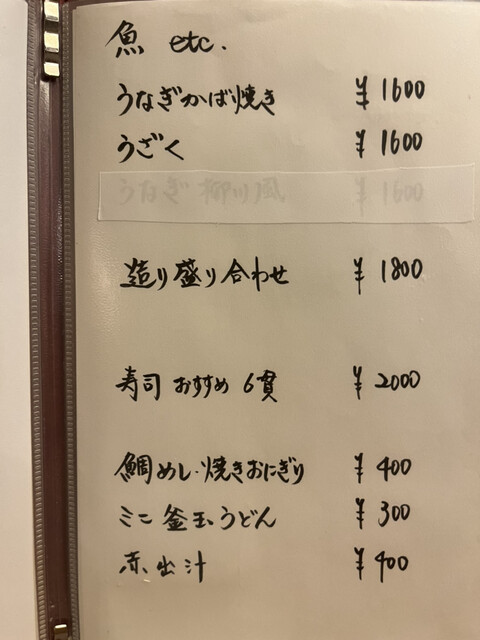 魚 etc.
うなぎかば焼き ¥1600
うざく ¥1600
うなぎ 柳川風 ¥1600
造り盛り合わせ ¥1800
寿司 おすすめ 6貫 ¥2000
鯛めし・焼きおにぎり ¥400
ミニ 釜玉うどん ¥300
赤出汁 ¥400